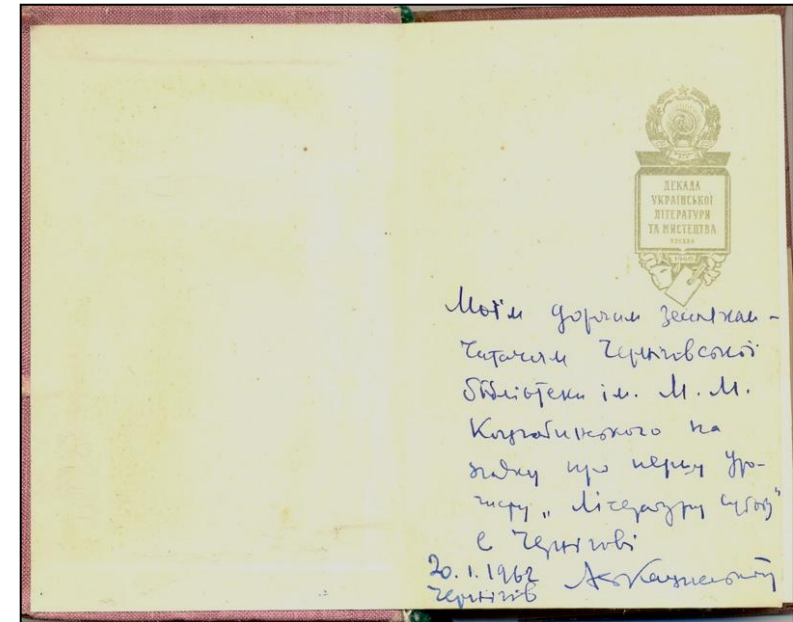 ДЕКАДА
УКРАЇНСЬКОЇ
ЛІТЕРАТУРИ
ТА МИСТЕЦТВА
МОСКВА
1960
Моїм дорогим землякам –
читачам Чернігівської
бібліотеки ім. М. М.
Коцюбинського на
згадку про першу уро-
чисту „Літературну суботу"
в Чернігові
20.1.1962
Чернігів